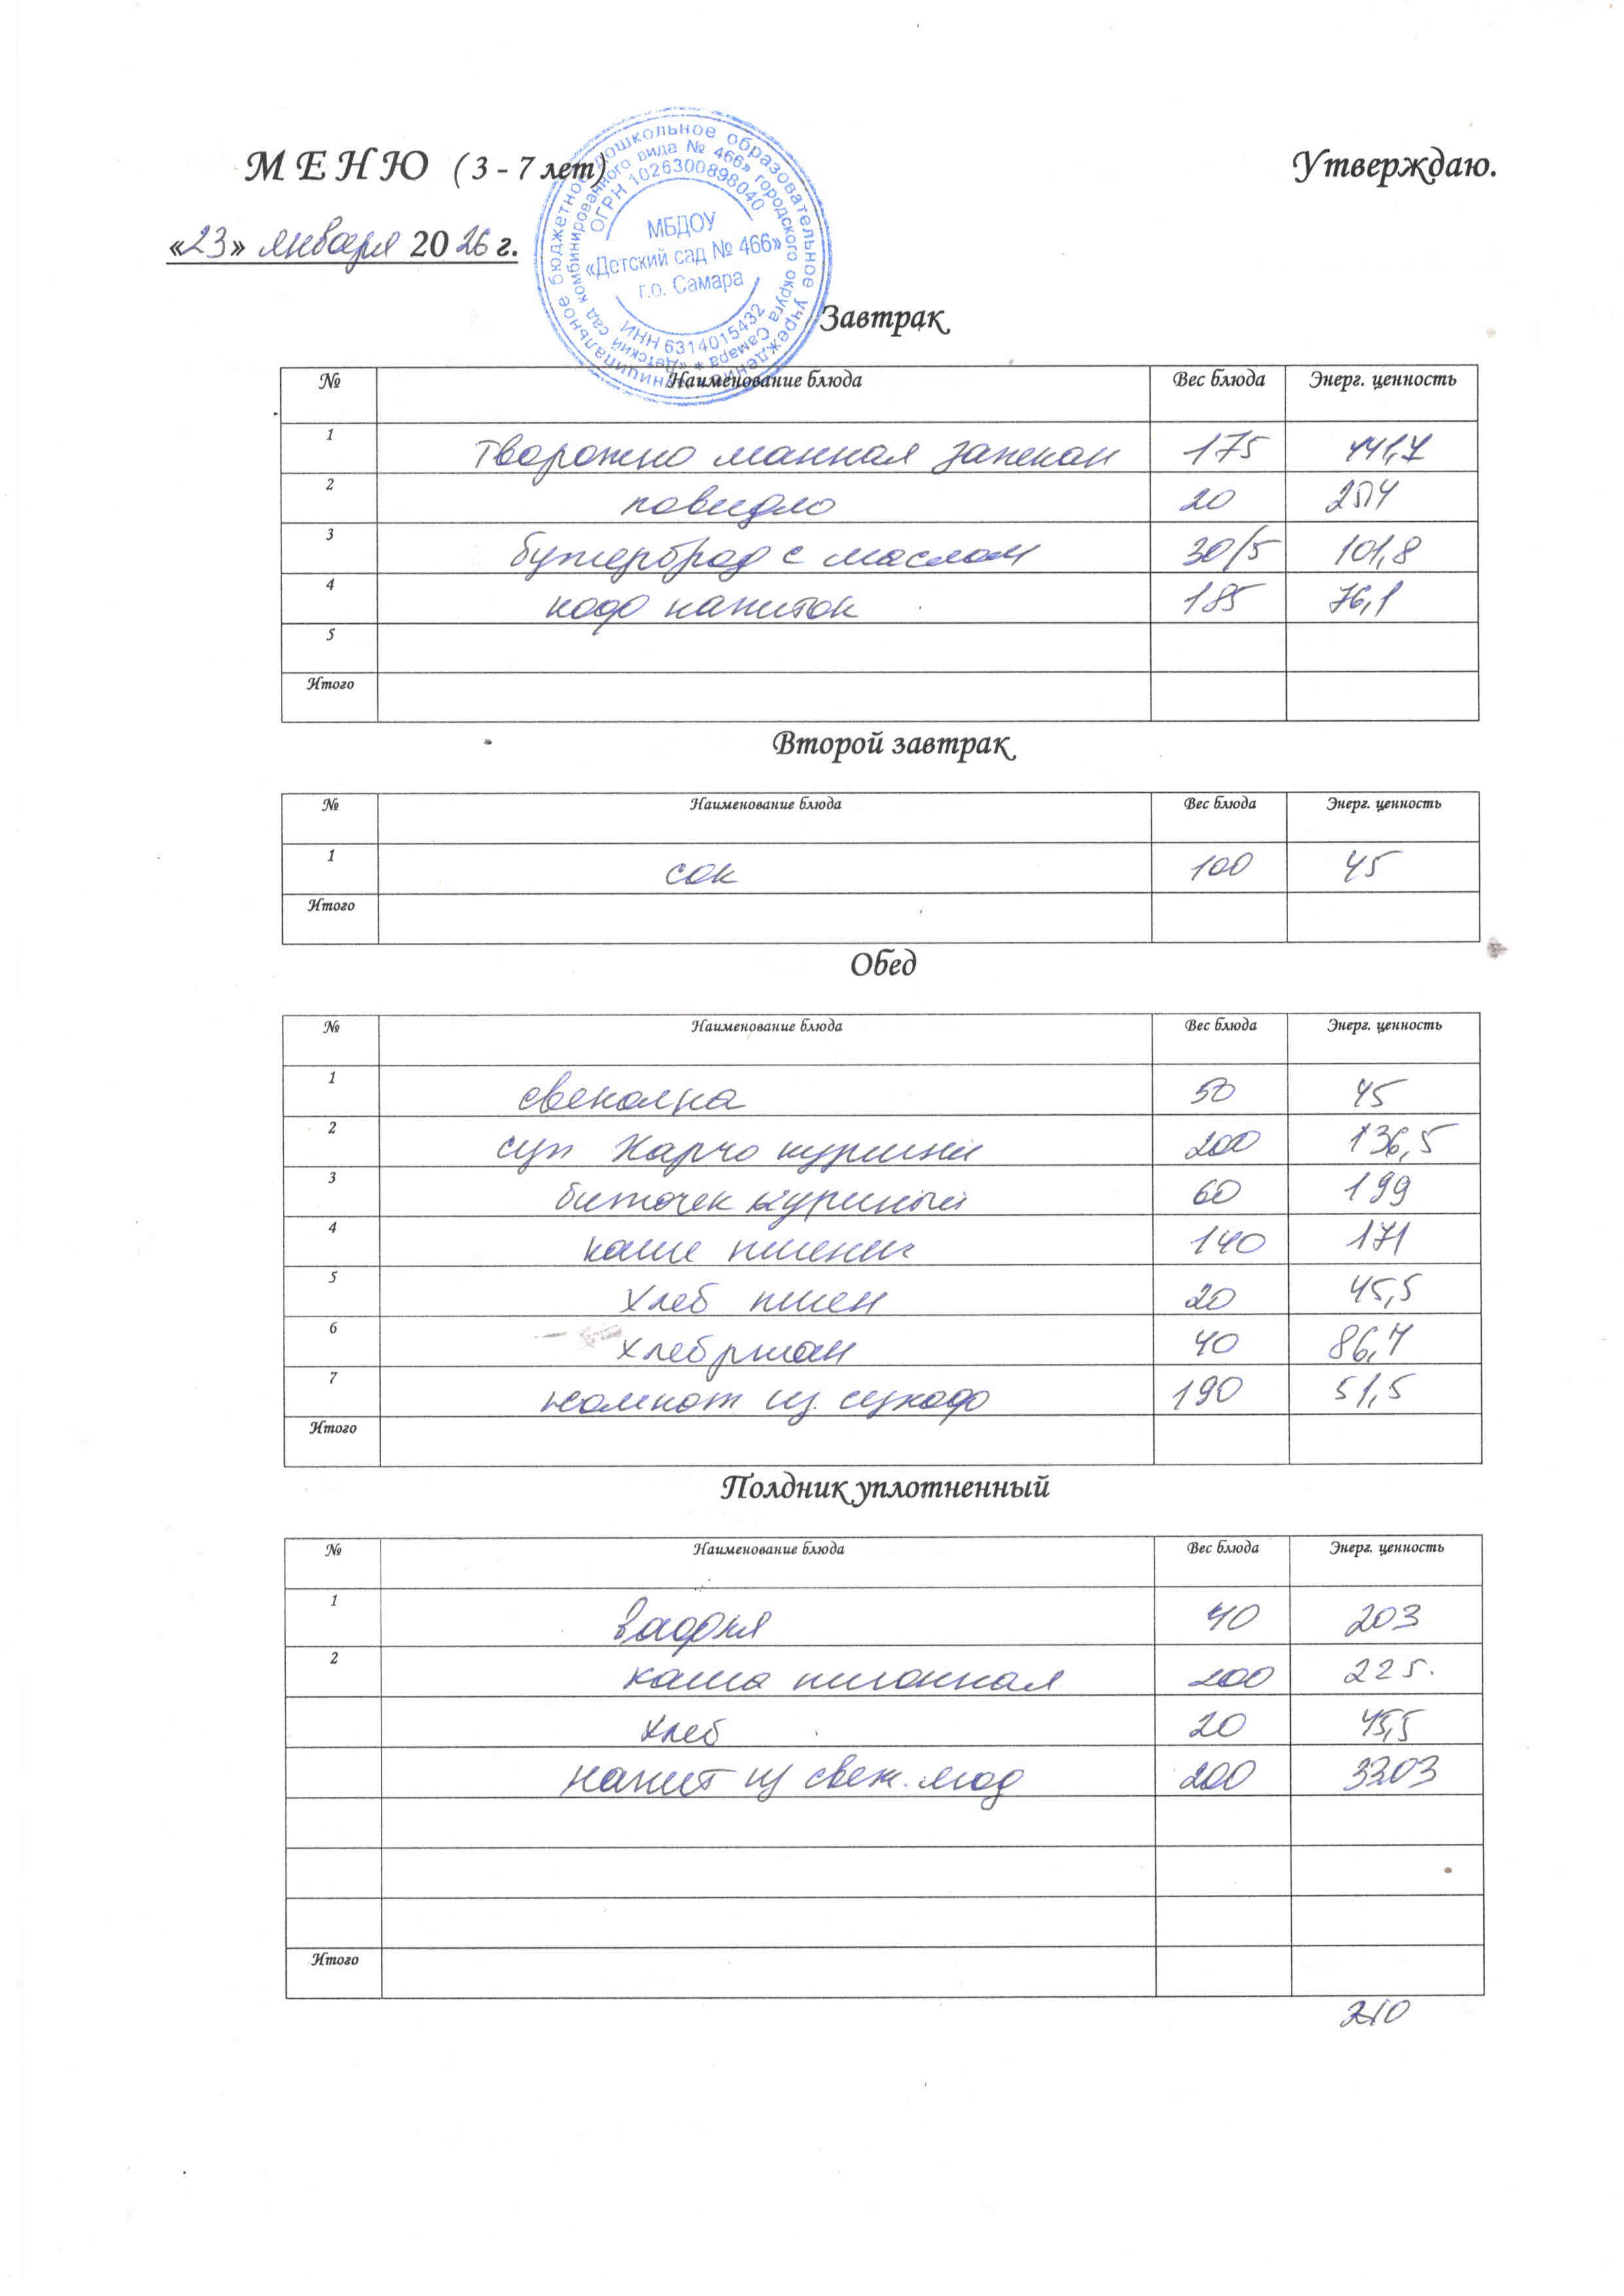 МЕНЮ (3 - 7 лет)
Утверждаю.
«23» января 2026 г.
муниципальное бюджетное дошкольное образовательное учреждение
«Детский сад комбинированного вида № 466» городского округа Самара *
ОГРН 1026300898040
МБДОУ
«Детский сад № 466»
г.о. Самара
ИНН 6314015432
Завтрак
№ Наименование блюда Вес блюда Энерг. ценность
1 творожно манная запекан 175
2 повидло 20
3 бутерброд с маслом 30/5 101,8
4 кофе напиток 185 76,1
5
Итого
Второй завтрак
№ Наименование блюда Вес блюда Энерг. ценность
1 сок 100 45
Итого
Обед
№ Наименование блюда Вес блюда Энерг. ценность
1 свеколка 50 45
2 суп Харчо куриный 200 136,5
3 биточек куриный 60 199
4 каша пшенич 140 171
5 хлеб пшен 20 45,5
6 хлеб ржан 40 86,7
7 компот из сухоф 190 51,5
Итого
Полдник уплотненный
№ Наименование блюда Вес блюда Энерг. ценность
1 вафля 40 203
2 каша пшонная 200 225.
хлеб 20 45,5
напит из свеж. ягод 200
Итого